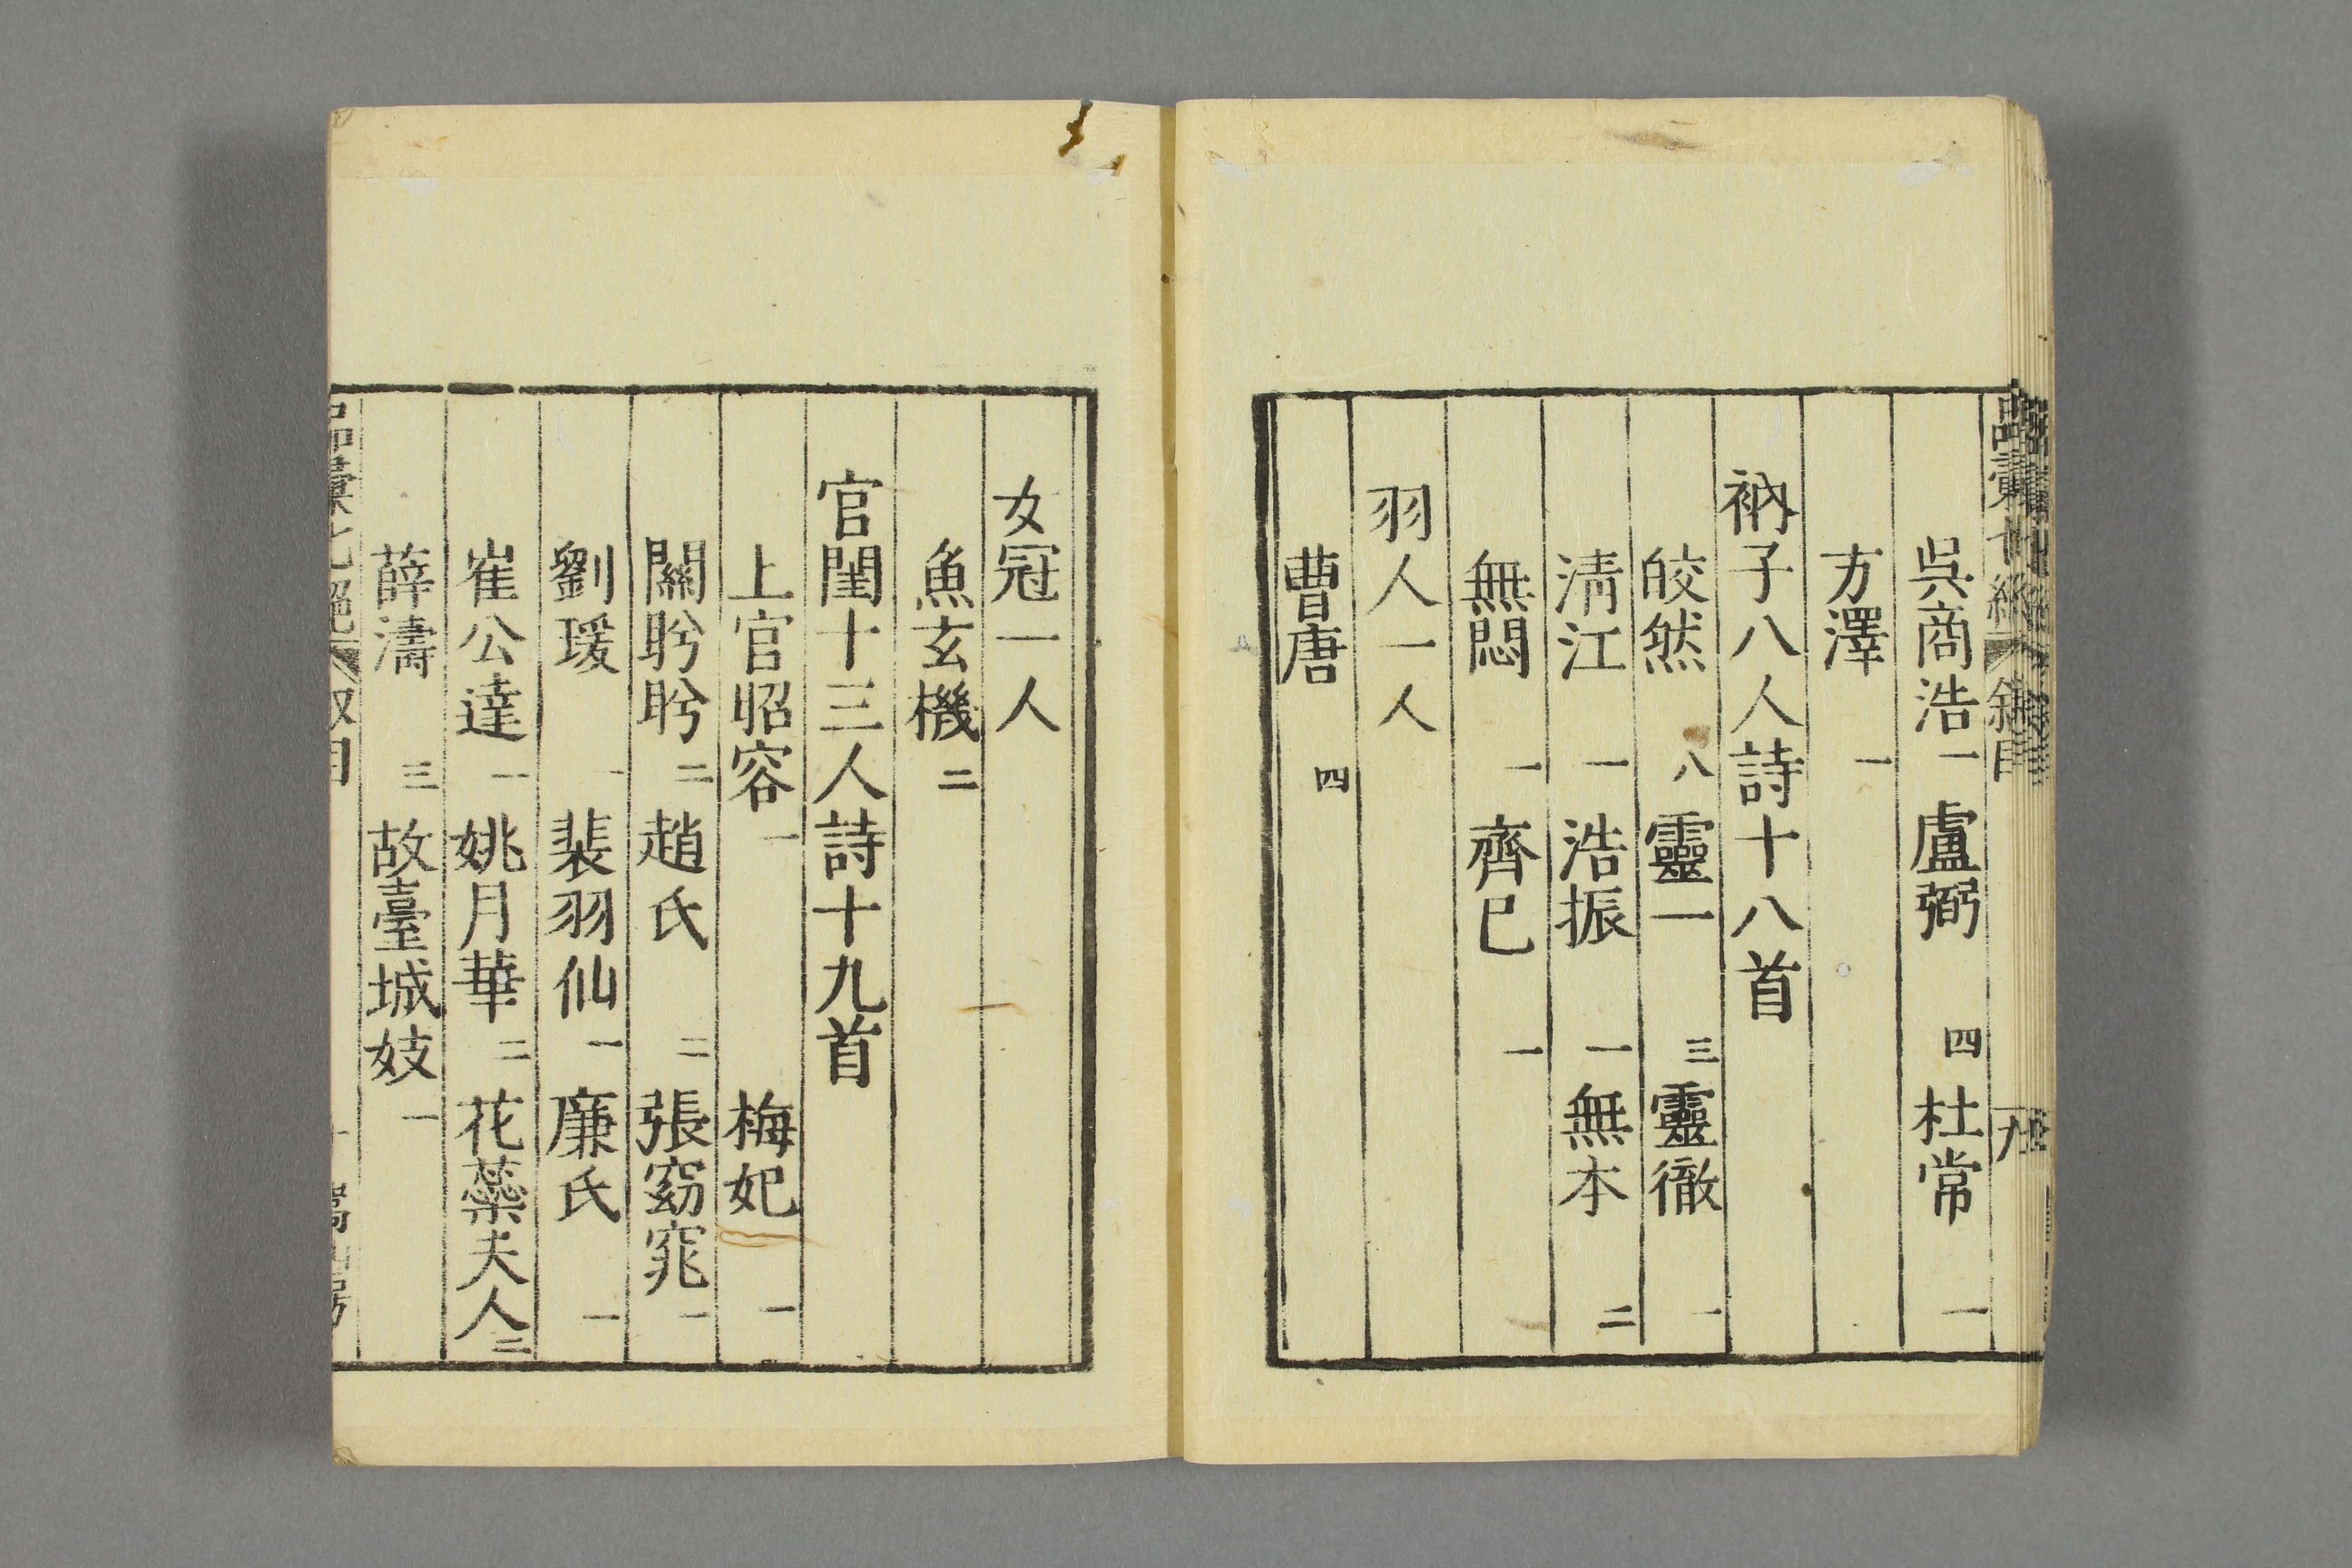 吳商浩一　盧弼　四　杜常　一
方澤　一
衲子八人詩十八首
皎然　八　靈一　三　靈徹　一
清江　一　浩振　一　無本　二
無悶　一　齊已　一
羽人一人
曹唐　四
女冠一人
魚玄機　二
官閨十三人詩十九首
上官昭容　一　梅妃　一
關盻盻　二　趙氏　二　張窈窕　一
劉瑗　一　裴羽仙　一　廉氏　一
崔公達　一　姚月華　二　花蘂夫人　二
薛濤　三　故臺城妓　一